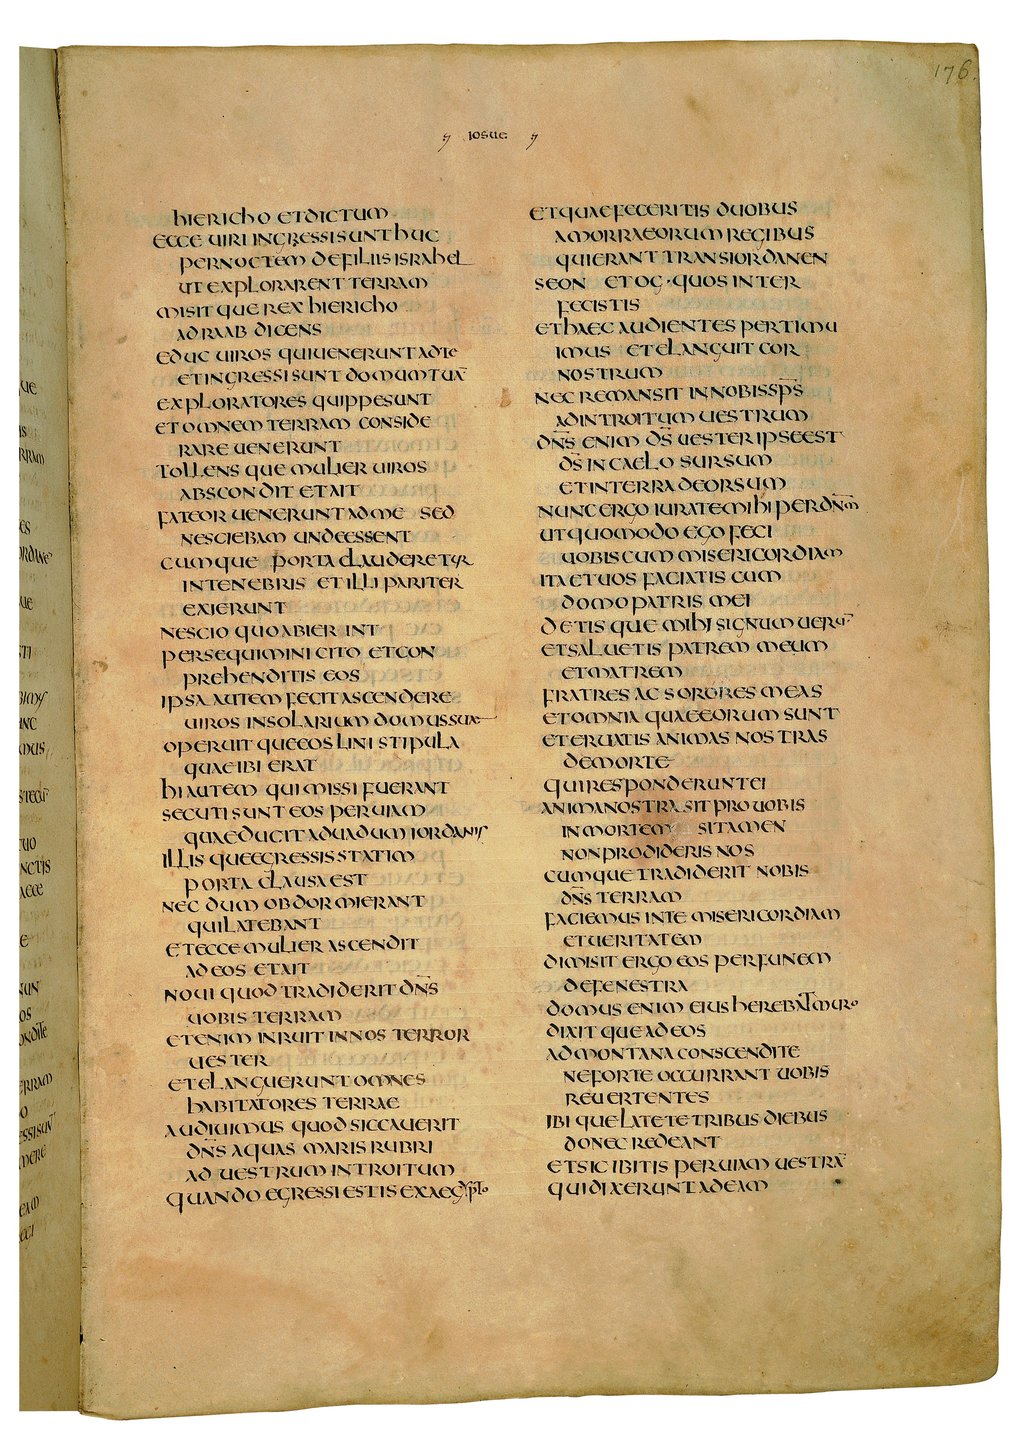 176.
IOSUE
hIERIChO ETDICTUM
ECCE UIRI INGRESSISUNT hUC
PERNOCTEM DEFILIIS ISRAhEL
UT EXPLORARENT TERRAM
MISITQUE REX hIERIChO
AD RAAB DICENS
EDUC UIROS QUI UENERUNT ADTE
ET INGRESSI SUNT DOMUM TUĀ
EXPLORATORES QUIPPE SUNT
ET OMNEM TERRAM CONSIDE
RARE UENERUNT
TOLLENSQUE MULIER UIROS
ABSCONDIT ET AIT
FATEOR UENERUNT AD ME SED
NESCIEBAM UNDE ESSENT
CUMQUE PORTA CLAUDERETUR
IN TENEBRIS ET ILLI PARITER
EXIERUNT
NESCIO QUO ABIERINT
PERSEQUIMINI CITO ET CON
PREhENDITIS EOS
IPSA AUTEM FECIT ASCENDERE
UIROS IN SOLARIUM DOMUS SUAE
OPERUITQUE EOS LINI STIPULA
QUAE IBI ERAT
hI AUTEM QUI MISSI FUERANT
SECUTI SUNT EOS PER UIAM
QUAE DUCIT AD UADUM IORDANIS
ILLISQUE EGRESSIS STATIM
PORTA CLAUSA EST
NECDUM OBDORMIERANT
QUI LATEBANT
ET ECCE MULIER ASCENDIT
AD EOS ET AIT
NOUI QUOD TRADIDERIT DN̄S
UOBIS TERRAM
ETENIM INRUIT IN NOS TERROR
UESTER
ET ELANGUERUNT OMNES
hABITATORES TERRAE
AUDIUIMUS QUOD SICCAUERIT
DN̄S AQUAS MARIS RUBRI
AD UESTRUM INTROITUM
QUANDO EGRESSI ESTIS EX AEGYPTO
ET QUAE FECERITIS DUOBUS
AMORRAEORUM REGIBUS
QUI ERANT TRANS IORDANEN
SEON ET OG · QUOS INTER
FECISTIS
ET hAEC AUDIENTES PERTIMU
IMUS ET ELANGUIT COR
NOSTRUM
NEC REMANSIT IN NOBIS SP̄S
AD INTROITUM UESTRUM
DN̄S ENIM D̄S UESTER IPSE EST
D̄S IN CAELO SURSUM
ET IN TERRA DEORSUM
NUNC ERGO IURATE MIhI PER DN̄M
UT QUOMODO EGO FECI
UOBISCUM MISERICORDIAM
ITA ET UOS FACIATIS CUM
DOMO PATRIS MEI
DETISQUE MIhI SIGNUM UERŪ
ET SALUETIS PATREM MEUM
ET MATREM
FRATRES AC SORORES MEAS
ET OMNIA QUAE EORUM SUNT
ET ERUATIS ANIMAS NOSTRAS
DE MORTE
QUI RESPONDERUNT EI
ANIMA NOSTRA SIT PRO UOBIS
IN MORTEM SI TAMEN
NON PRODIDERIS NOS
CUMQUE TRADIDERIT NOBIS
DN̄S TERRAM
FACIEMUS IN TE MISERICORDIAM
ET UERITATEM
DIMISIT ERGO EOS PER FUNEM
DE FENESTRA
DOMUS ENIM EIUS hEREBAT MURO
DIXITQUE AD EOS
AD MONTANA CONSCENDITE
NE FORTE OCCURRANT UOBIS
REUERTENTES
IBIQUE LATETE TRIBUS DIEBUS
DONEC REDEANT
ET SIC IBITIS PER UIAM UESTRĀ
QUI DIXERUNT AD EAM